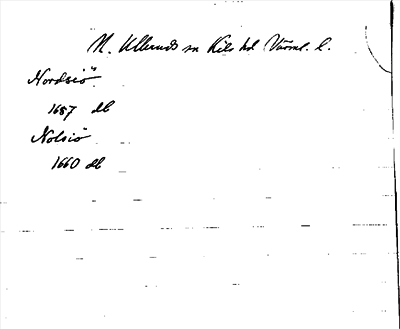 N. Ulleruds sn Kils hd Värml. l.
Nordsiö
1687 db
Nolsiö
1660 db